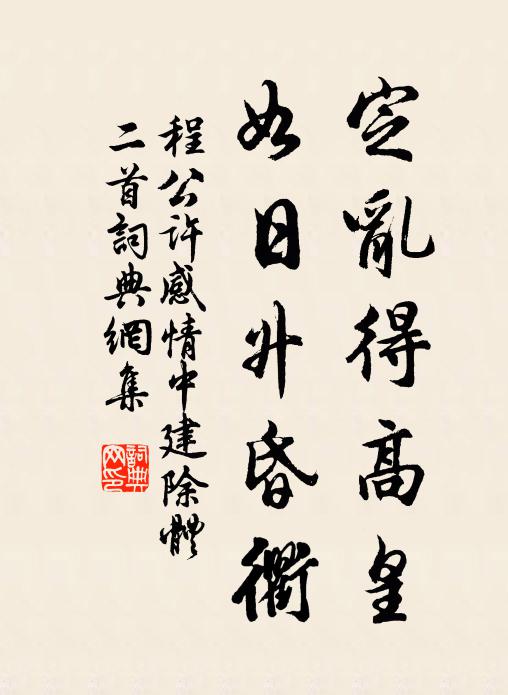 定亂得高皇
如日升昏衢
程公许感情中建除體
二首詞典網集
詞典
网印